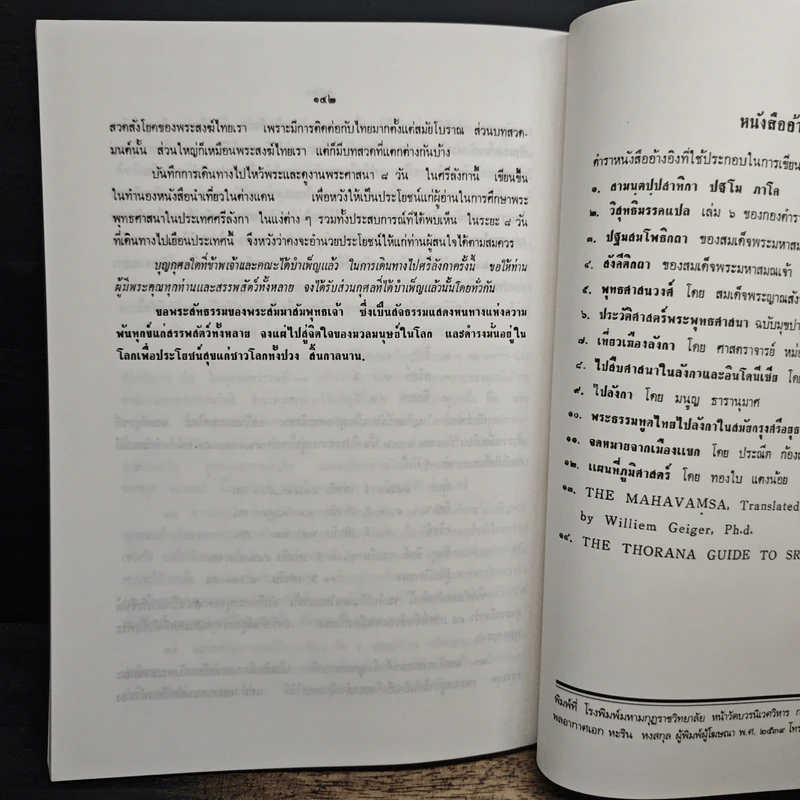 ๑๔๒
สวดสังโยคของพระสงฆ์ไทยเรา เพราะมีการติดต่อกับไทยมากตั้งแต่สมัยโบราณ ส่วนบทสวด-
มนต์นั้น ส่วนใหญ่ก็เหมือนพระสงฆ์ไทยเรา แต่ก็มีบทสวดที่แตกต่างกันบ้าง
บันทึกการเดินทางไปไหว้พระและดูงานพระศาสนา ๘ วัน ในศรีลังกานี้ เขียนขึ้น
ในทำนองหนังสือนำเที่ยวในต่างแดน เพื่อหวังให้เป็นประโยชน์แก่ผู้อ่านในการศึกษาพระ
พุทธศาสนาในประเทศศรีลังกา ในแง่ต่าง ๆ รวมทั้งประสบการณ์ที่ได้พบเห็น ในระยะ ๘ วัน
ที่เดินทางไปเยือนประเทศนี้ จึงหวังว่าคงจะอำนวยประโยชน์ให้แก่ท่านผู้สนใจได้ตามสมควร
บุญกุศลใดที่ข้าพเจ้าและคณะได้บำเพ็ญแล้ว ในการเดินทางไปศรีลังกาครั้งนี้ ขอให้ท่าน
ผู้มีพระคุณทุกท่านและสรรพสัตว์ทั้งหลาย จงได้รับส่วนกุศลที่ได้บำเพ็ญแล้วนั้นโดยทั่วกัน
ขอพระสัทธรรมของพระสัมมาสัมพุทธเจ้า ซึ่งเป็นสัจธรรมแสดงหนทางแห่งความ
พ้นทุกข์แก่สรรพสัตว์ทั้งหลาย จงแผ่ไปสู่จิตใจของมวลมนุษย์ในโลก และดำรงมั่นอยู่ใน
โลกเพื่อประโยชน์สุขแก่ชาวโลกทั้งปวง สิ้นกาลนาน.
หนังสืออ้า
ตำราหนังสืออ้างอิงที่ใช้ประกอบในการเขียน
๑. สามนฺตปฺปสาทิกา ปฐโม ภาโค
๒. วิสุทธิมรรคแปล เล่ม ๖ ของกองตำรา
๓. ปฐมสมโพธิกถา ของสมเด็จพระมหาสม
๔. สังคีติกถา ของสมเด็จพระมหาสมณเจ้า
๕. พุทธศาสนวงศ์ โดย สมเด็จพระญาณสัง
๖. ประวัติศาสตร์พระพุทธศาสนา ฉบับมุขปา
๗. เที่ยวเมืองลังกา โดย ศาสตราจารย์ หม่
๘. ไปสืบศาสนาในลังกาและอินโดนีเซีย โดย
๙. ไปลังกา โดย มนูญ ธารานุมาศ
๑๐. พระธรรมทูตไทยไปลังกาในสมัยกรุงศรีอยุธ
๑๑. จดหมายจากเมืองแขก โดย ประณีต ก้อง
๑๒. แผนที่ภูมิศาสตร์ โดย ทองใบ แตงน้อย
๑๓. THE MAHAVAMSA, Translated
by Williem Geiger, Ph.d.
๑๔. THE THORANA GUIDE TO SR
พิมพ์ที่ โรงพิมพ์มหามกุฏราชวิทยาลัย หน้าวัดบวรนิเวศวิหาร ก
พลอากาศเอก หะริน หงสกุล ผู้พิมพ์ผู้โฆษณา พ.ศ. ๒๕๓๙ โทร